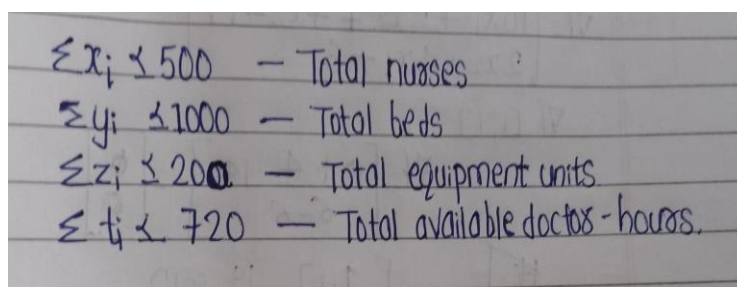 Σxᵢ ≤ 500 – Total nurses
Σyᵢ ≤ 1000 – Total beds
Σzᵢ ≤ 200 – Total equipment units
Σtᵢ ≤ 720 – Total available doctor-hours.